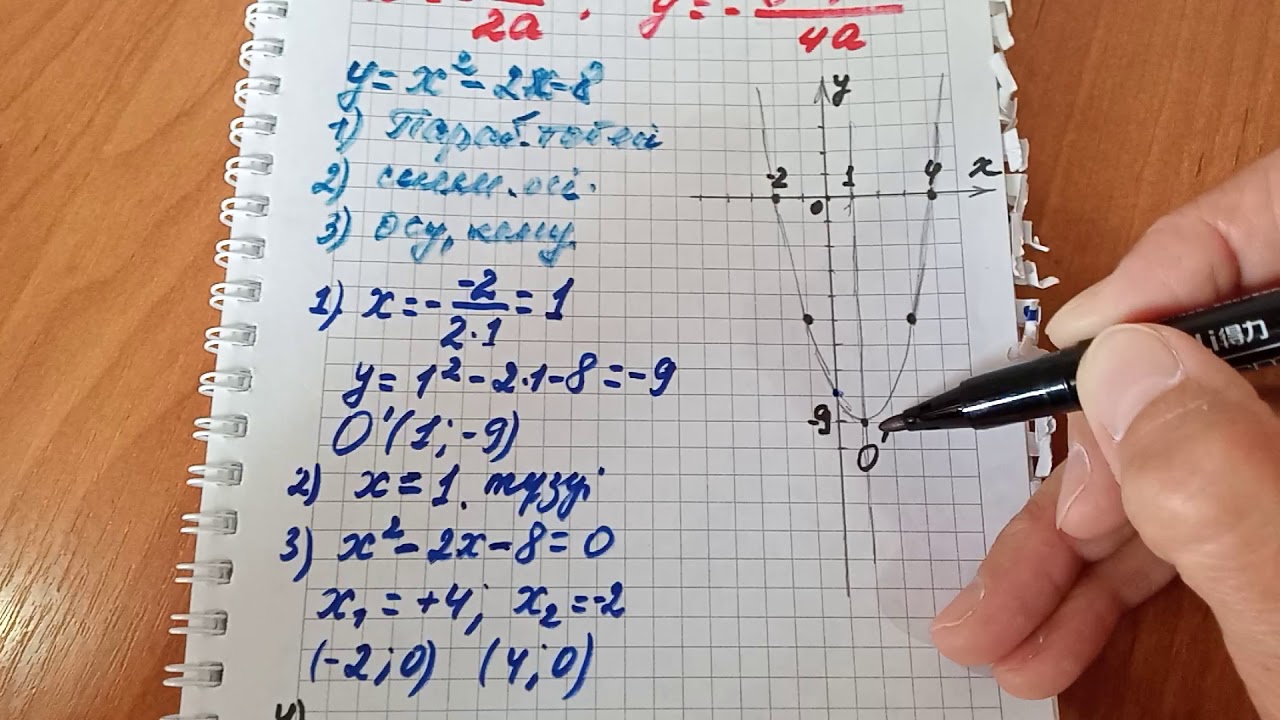 2a , y = -
4a
y = x² - 2x - 8
1) Параб. төбесі
2) симм. осі.
3) өсу, кему
1) x = - -2/2·1 = 1
y = 1² - 2·1 - 8 = -9
O'(1; -9)
2) x = 1. түзуі
3) x² - 2x - 8 = 0
x₁ = +4; x₂ = -2
(-2; 0) (4; 0)
4)
y
-2 1 4 x
0
-9
O'
Li得力